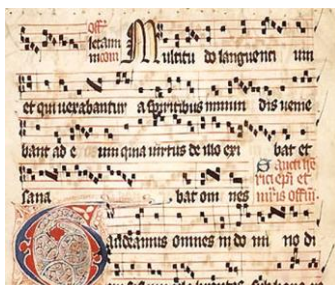 off
letam
Multitu do languenti um
et qui uexabantur a spiritibus inmun dis uenie
bant ad e um quia uirtus de illo exi bat et
sana bat om nes
Sancti
rici epi et
mris offm.
Gaudeamus omnes in do mi no di